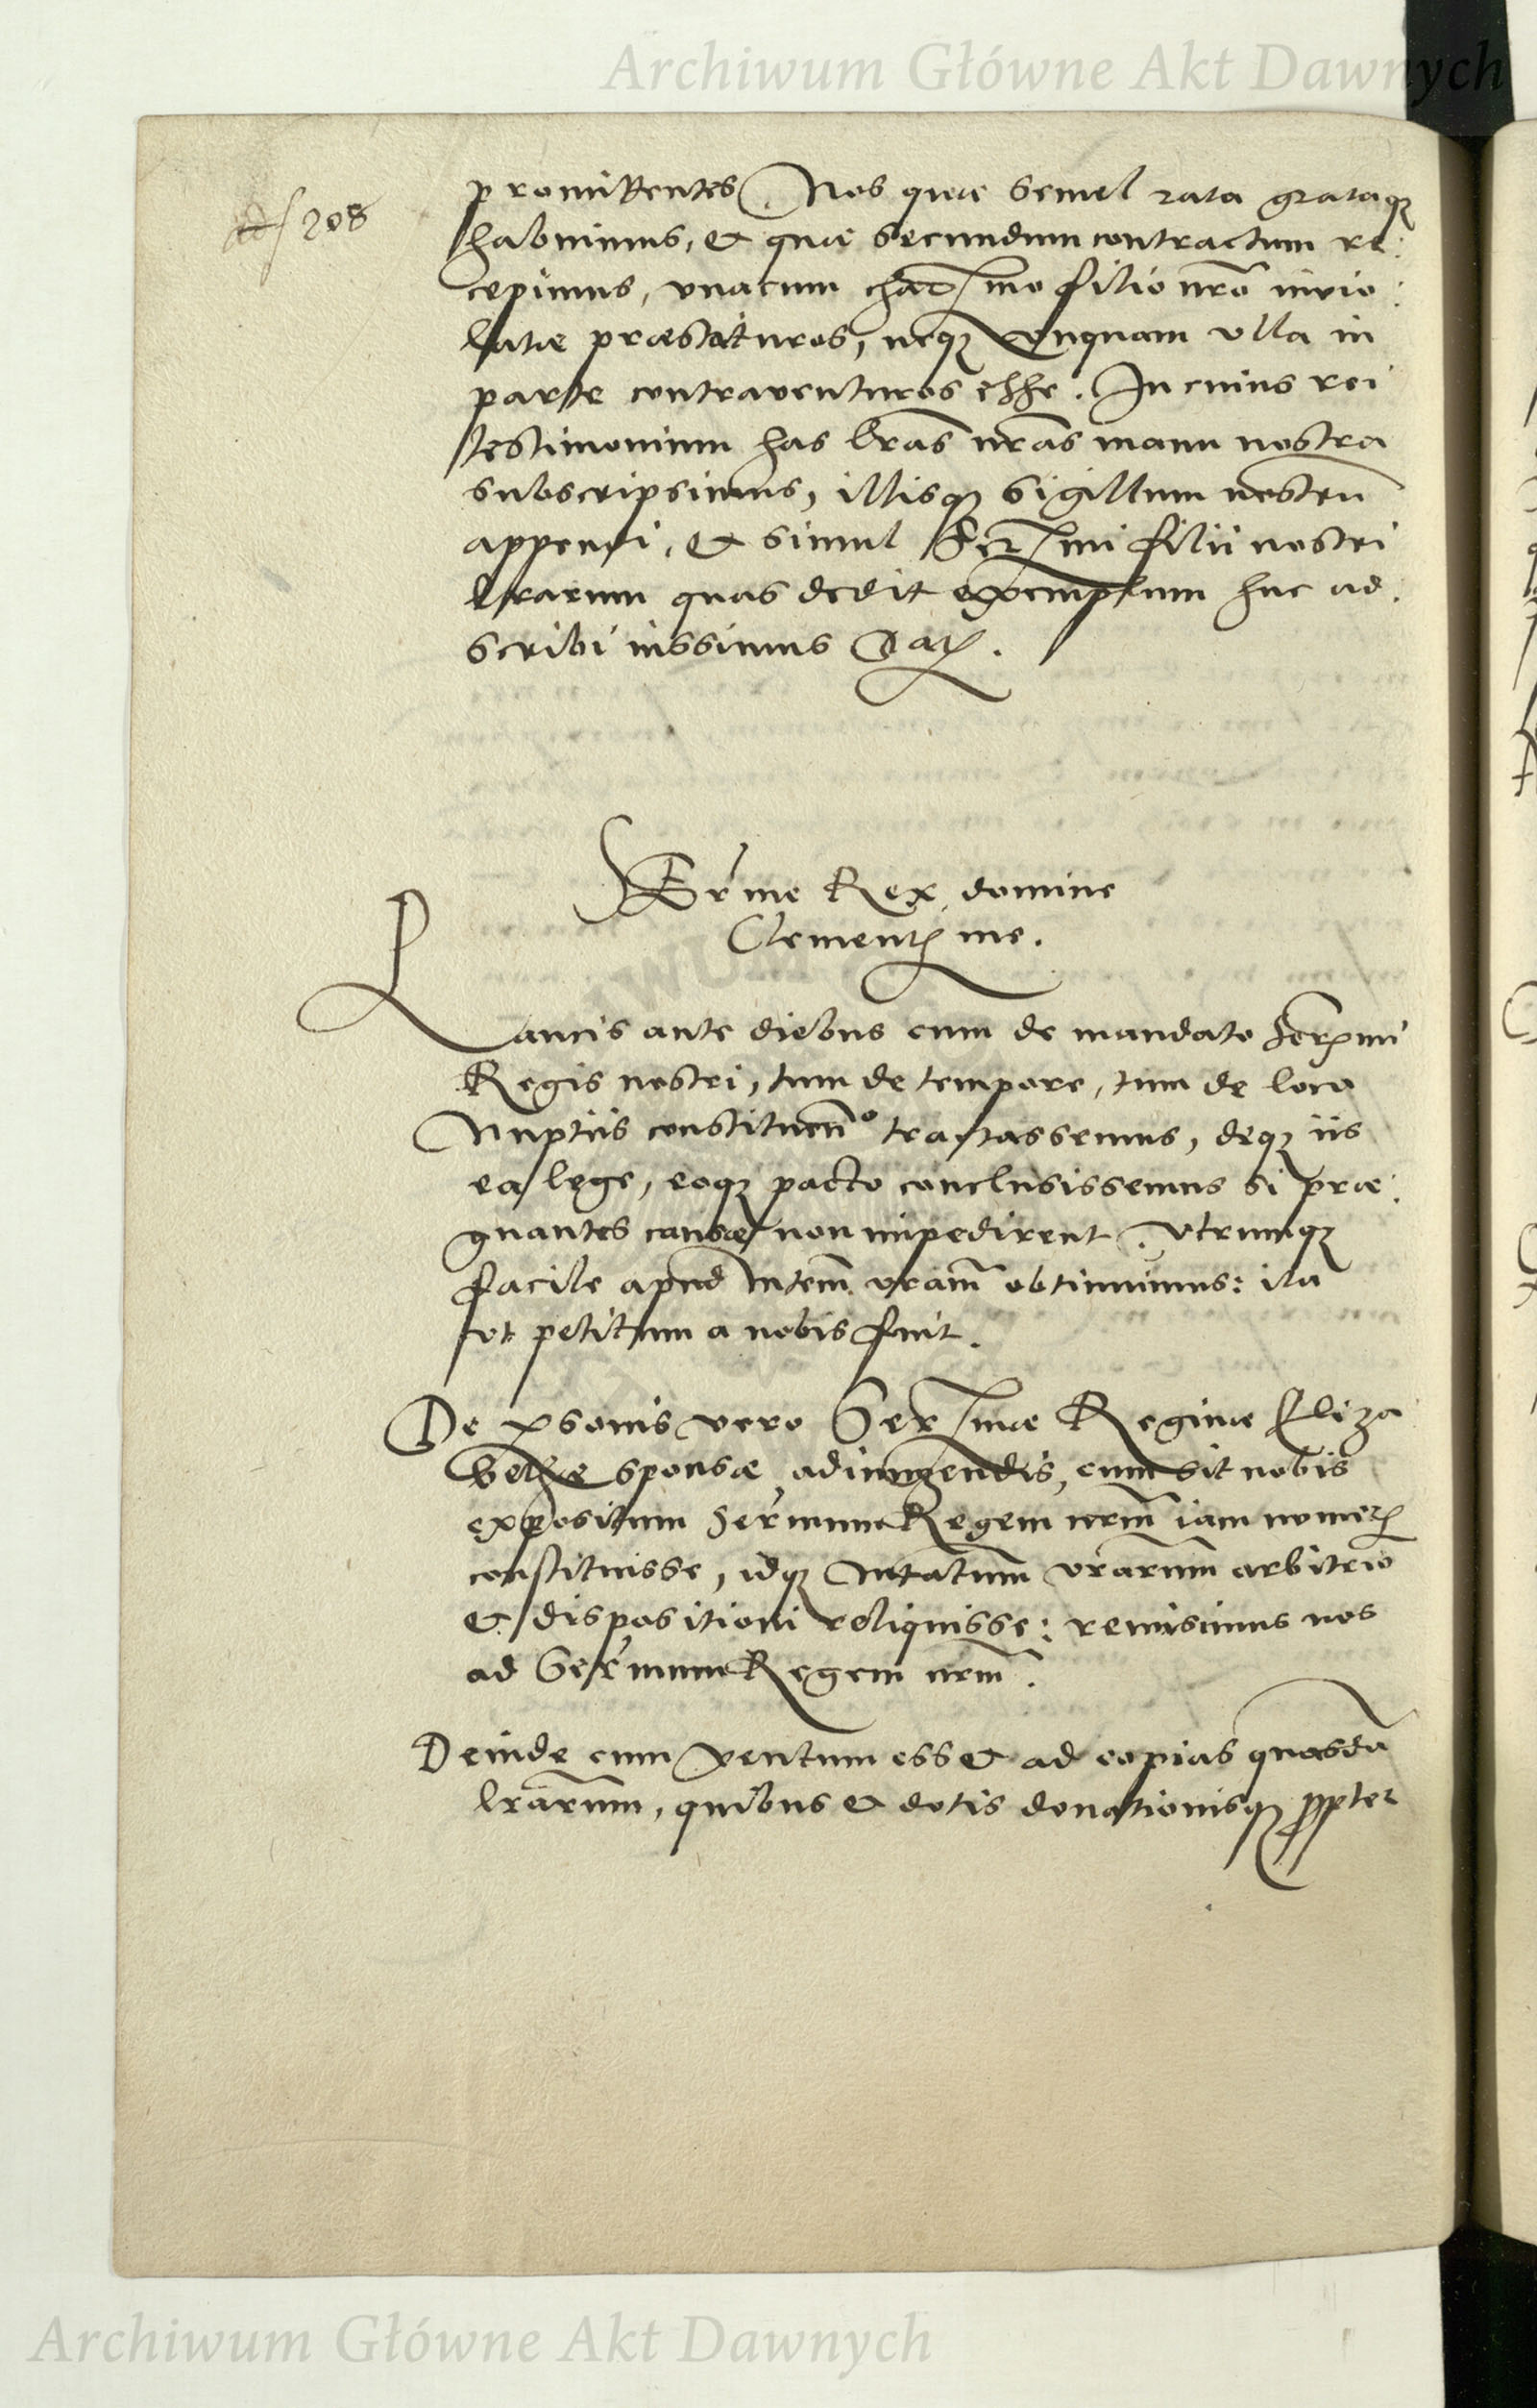 Archiwum Główne Akt Dawnych
208
promittentes. Nos quae semel rata grataq3
habuimus, et quae secundum contractum re:
cepimus, vnacum charmo filio nro invio:
late praestaturos, neq3 vnquam vlla in
parte contraventuros esse. In cuius rei
testimonium has lras nras manu nostra
subscripsimus, illisq3 sigillum nostrū
appendi, et simul Sermi filii nostri
lrarum quas dedit exemplum huc ad:
scribi iussimus Dat.
Serme Rex domine
Clementme.
Paucis ante diebus cum de mandato Sermi
Regis nostri, tum de tempore, tum de loco
Nuptiis constituen° tractassemus, deq3 iis
ea lege, eoq3 pacto conclusissemus si prae:
gnantes causae non impedirent. Vtrumq3
facile apud Mtem vram obtinuimus: ita
vt petitum a nobis fuit.
De psonis vero Sermae Reginae Eliza
bethae sponsae adiungendis, cum sit nobis
expositum Sermum Regem nrm iam
constituisse, idq3 Mtatum vrarum arbitrio
et dispositioni reliquisse: remisimus nos
ad Sermum Regem nrm.
Deinde cum ventum esset ad copias quasdā
lrarum, quibus et dotis donationisq3 ppter
Archiwum Główne Akt Dawnych